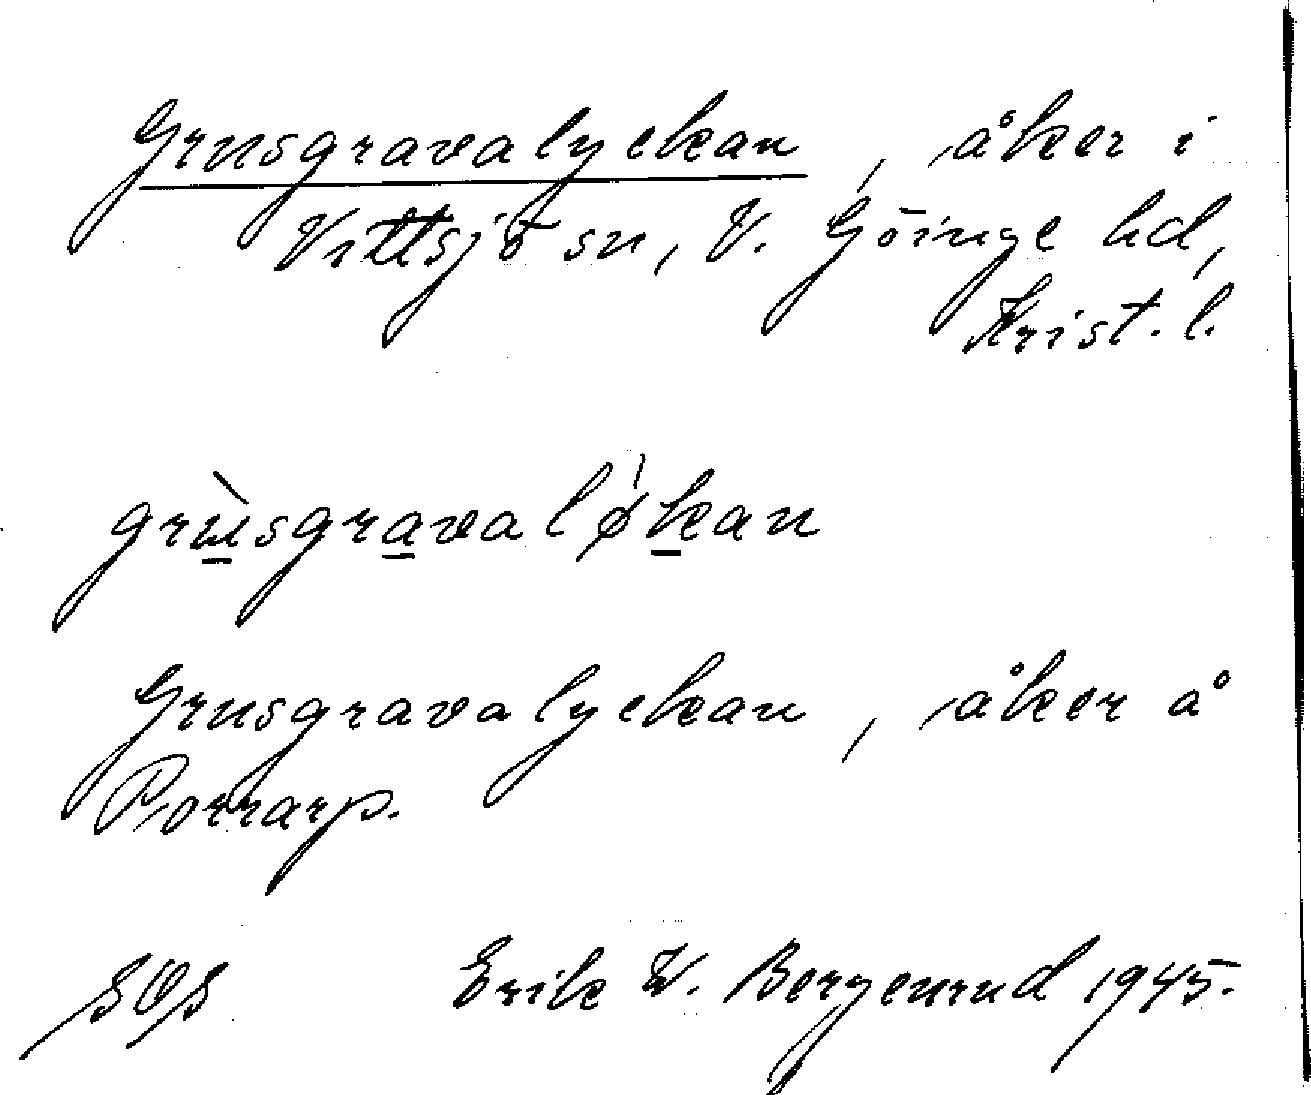 Grusgravalyckan, åker i
Vittsjö sn, V. Göinge hd,
Krist. l.
grùsgravaló̸kan
Grusgravalyckan, åker å
Porrarp.
SOS Erik W. Bergenrud 1945.